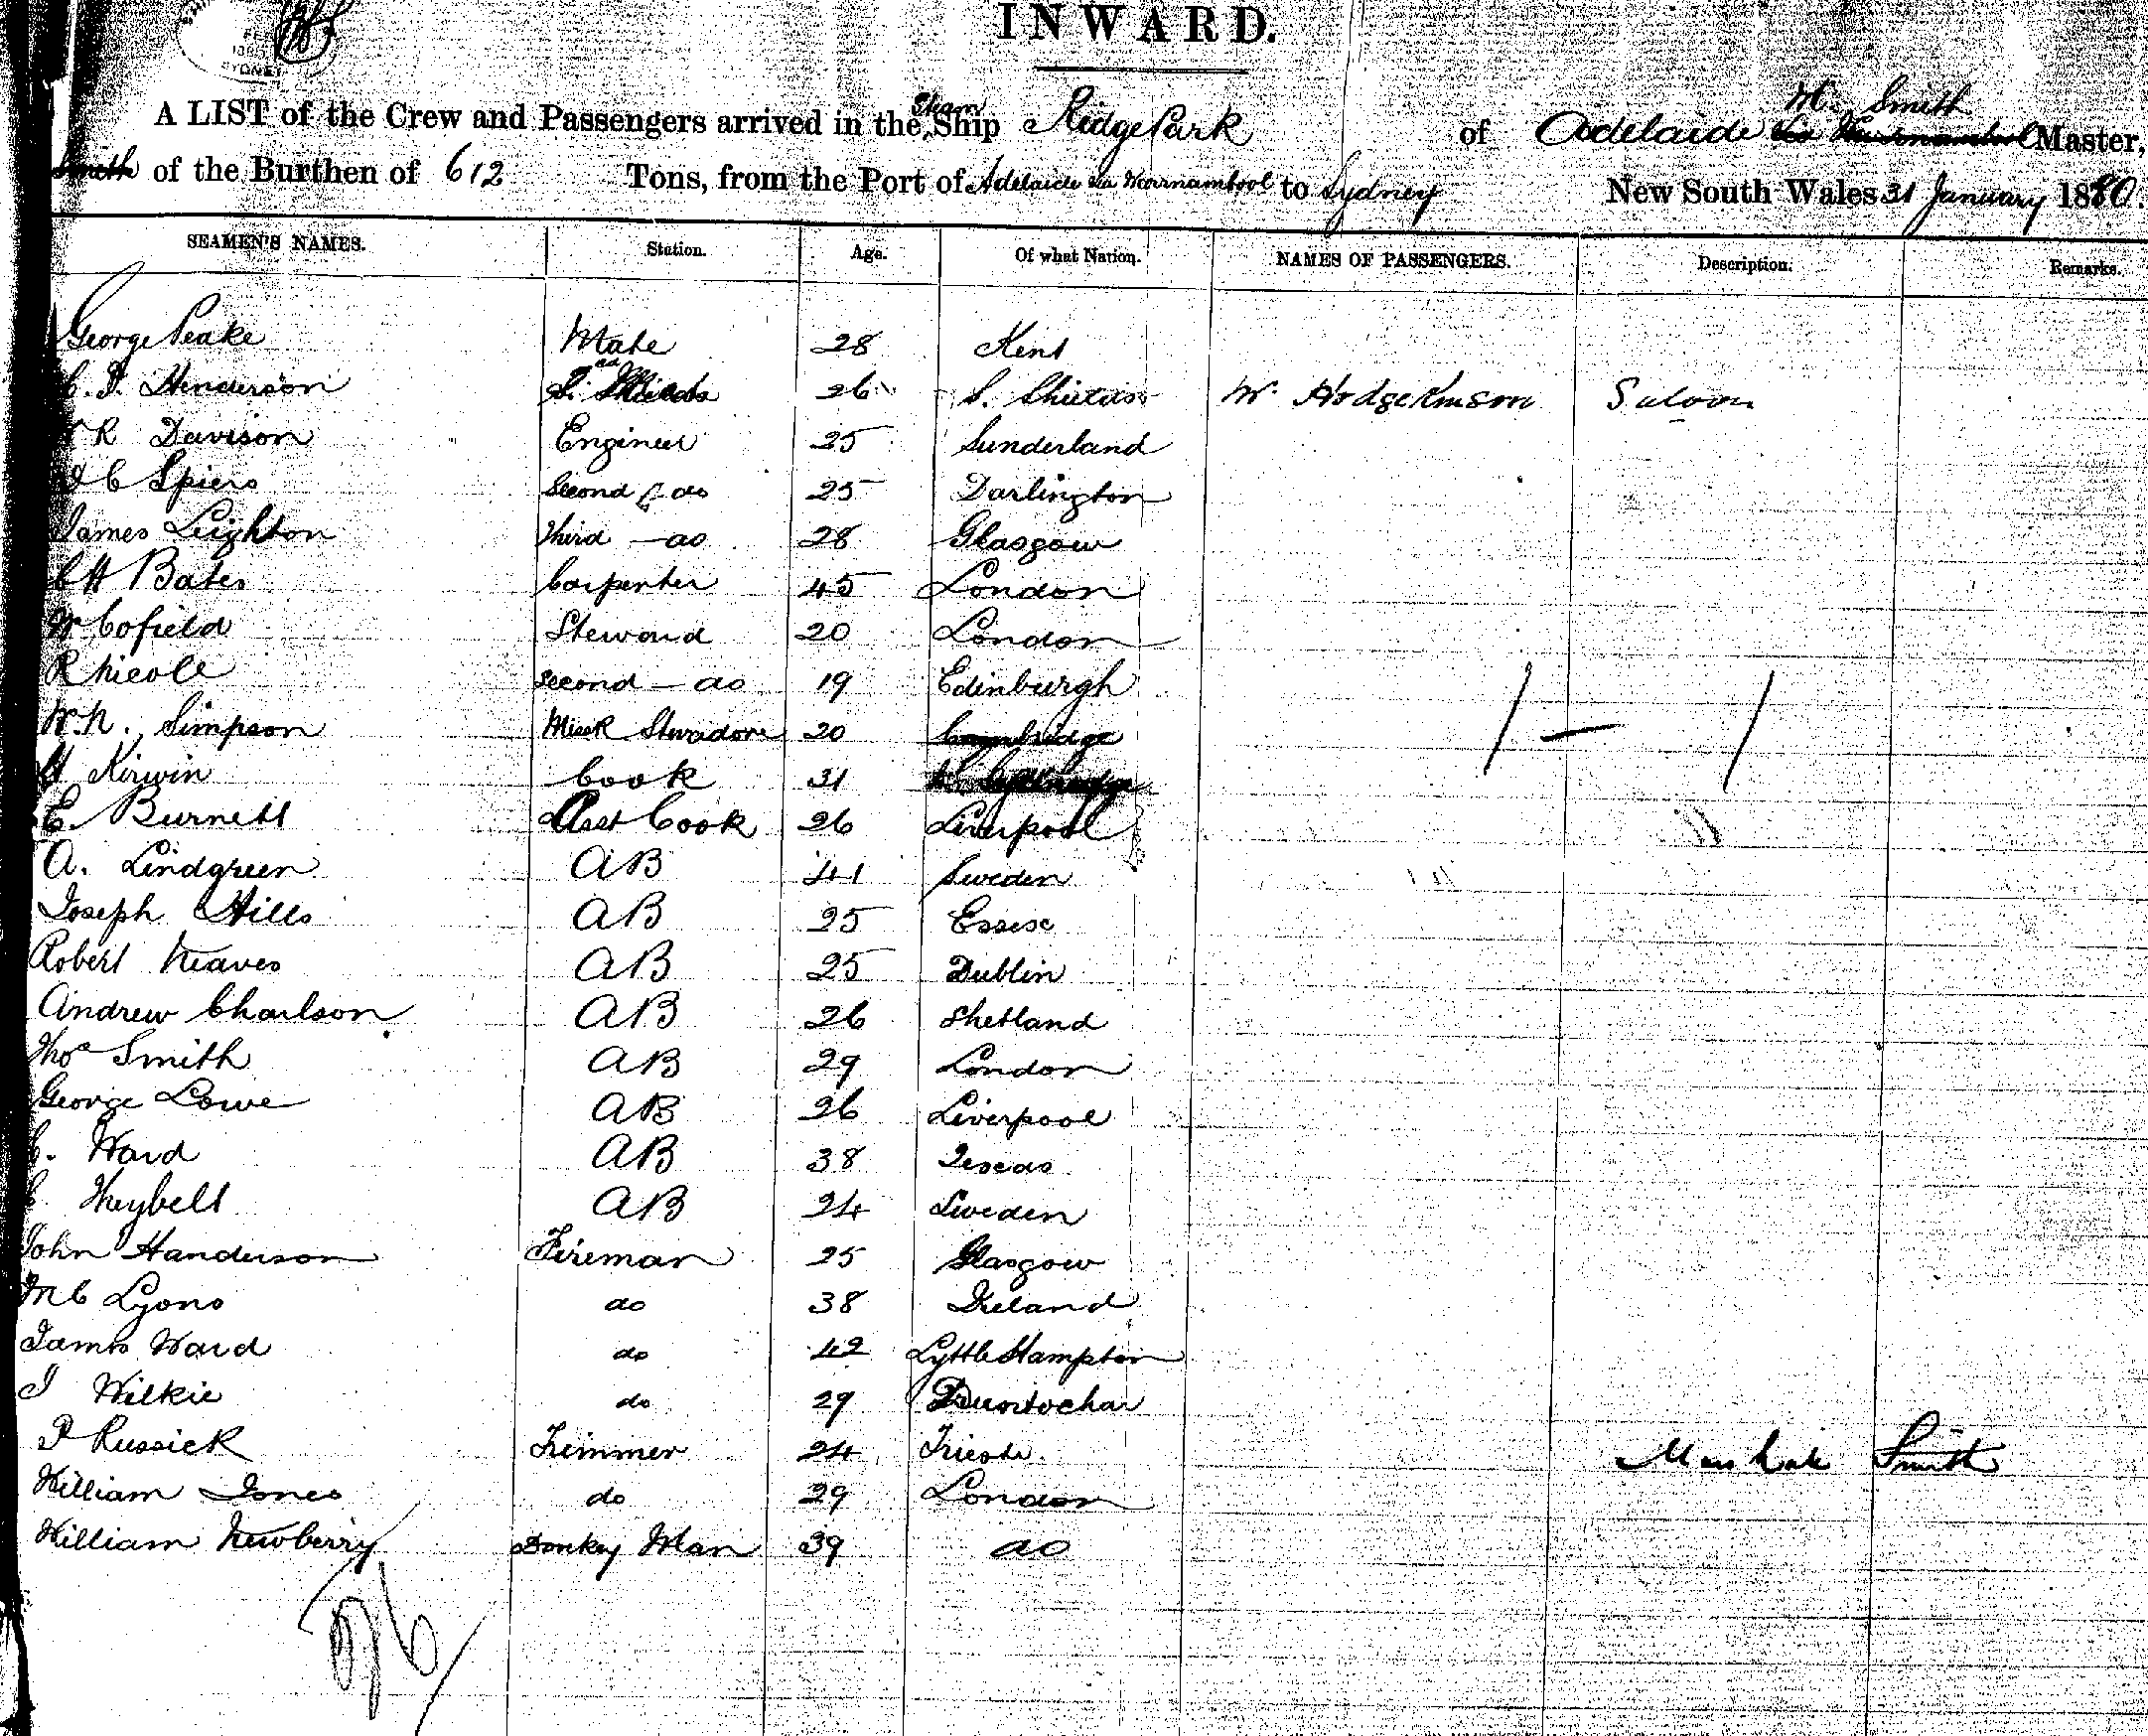 SYDNEY
INWARD.
A LIST of the Crew and Passengers arrived in the Steam Ship Ridge Park of Adelaide M. Smith Master,
of the Burthen of 612 Tons, from the Port of Adelaide via Warrnambool to Sydney New South Wales 31 January 1880.
SEAMEN'S NAMES. Station. Age. Of what Nation. NAMES OF PASSENGERS. Description. Remarks.
George Peake Mate 28 Kent
Henderson 26 S. Shields W. Hodgekinson Saloon
R Davison Engineer 25 Sunderland
C Spiers Second do 25 Darlington
James Leighton Third - do 28 Glasgow
C H Bates Carpenter 45 London
W Cofield Steward 20 London
R Nicole Second - do 19 Edinburgh
W. N. Simpson 20
Kirwin Cook 31
E. Burnett Asst Cook 26 Liverpool
A. Lindgreen AB 41 Sweden
Joseph Hills AB 25 Essex
Robert Neaves AB 25 Dublin
Andrew Charlson AB 26 Shetland
Thos Smith AB 29 London
George Lowe AB 26 Liverpool
C. Ward AB 38
C Theybelt AB 24 Sweden
John Handerson Fireman 25 Glasgow
Mc Lyons do 38 Ireland
James Ward do 42 Lyttle Hampton
J Wilkie do 29
P Russick Trimmer 24 Trieste
William Jones do 29 London
Marshall Smith
William Newberry Donkey Man 39 do
26